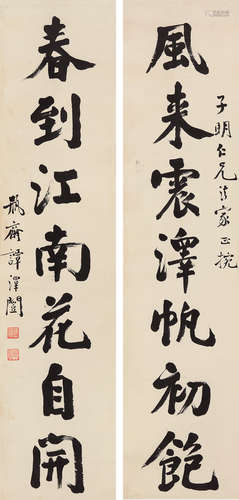 風来震澤帆初飽
子明仁兄法家正掞
春到江南花自開
瓶齋譚澤闓